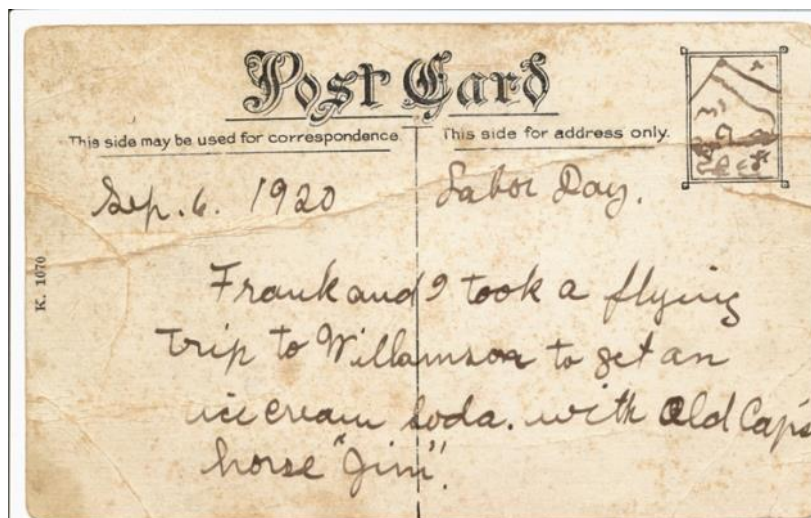 Post Card
This side may be used for correspondence. This side for address only.
Sep. 6. 1920 Labor Day.
K. 1070
Frank and I took a flying
trip to Williamson to get an
ice cream soda. with Old Cap's
horse "Jim".